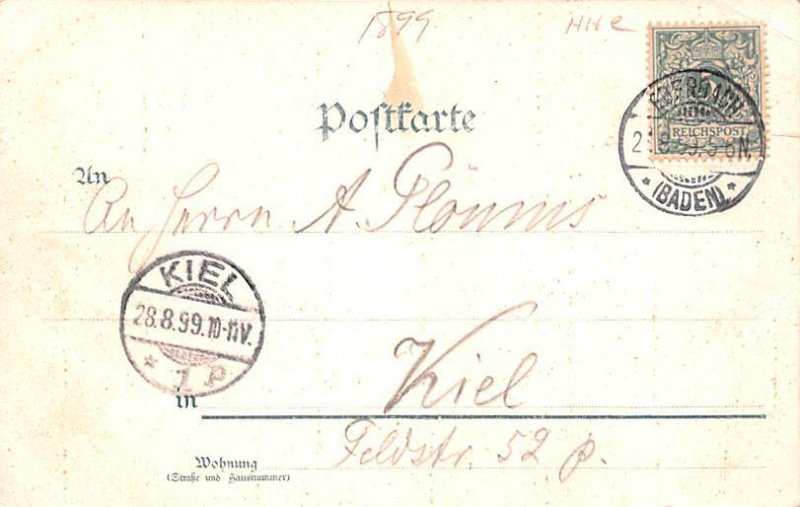 1899
Postkarte
5
REICHSPOST
(BADEN)
An
An Herrn A. Plönnis
KIEL
28.8.99.10-11V.
* 1 P
in
Kiel
Feldstr. 52 p.
Wohnung
(Straße und Hausnummer)